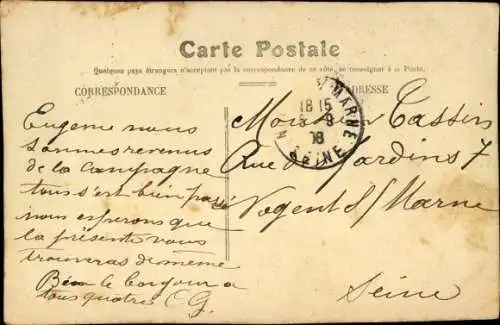 Carte Postale
Quelques pays étrangers n'acceptant pas la correspondance de ce côté, se renseigner à la Poste.
CORRESPONDANCE
ADRESSE
Eugeme nous
sommes revenus
de la Campagne
tous s'est bien passé
nous esperons que
la présente vous
trouveras de meme
le bonjour a
tous quatres C G.
MARNE
18 15
SEINE
Tassin
Rue des Jardins 7
Nogent s/ Marne
Seine